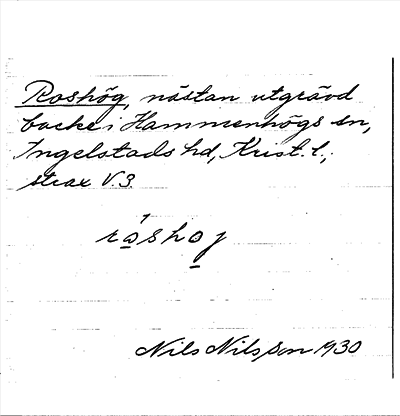 Roshög, nästan utgrävd
backe i Hammenhögs sn,
Ingelstads hd, Krist. l.,
strax V. 3.
råshoj
Nils Nilsson 1930